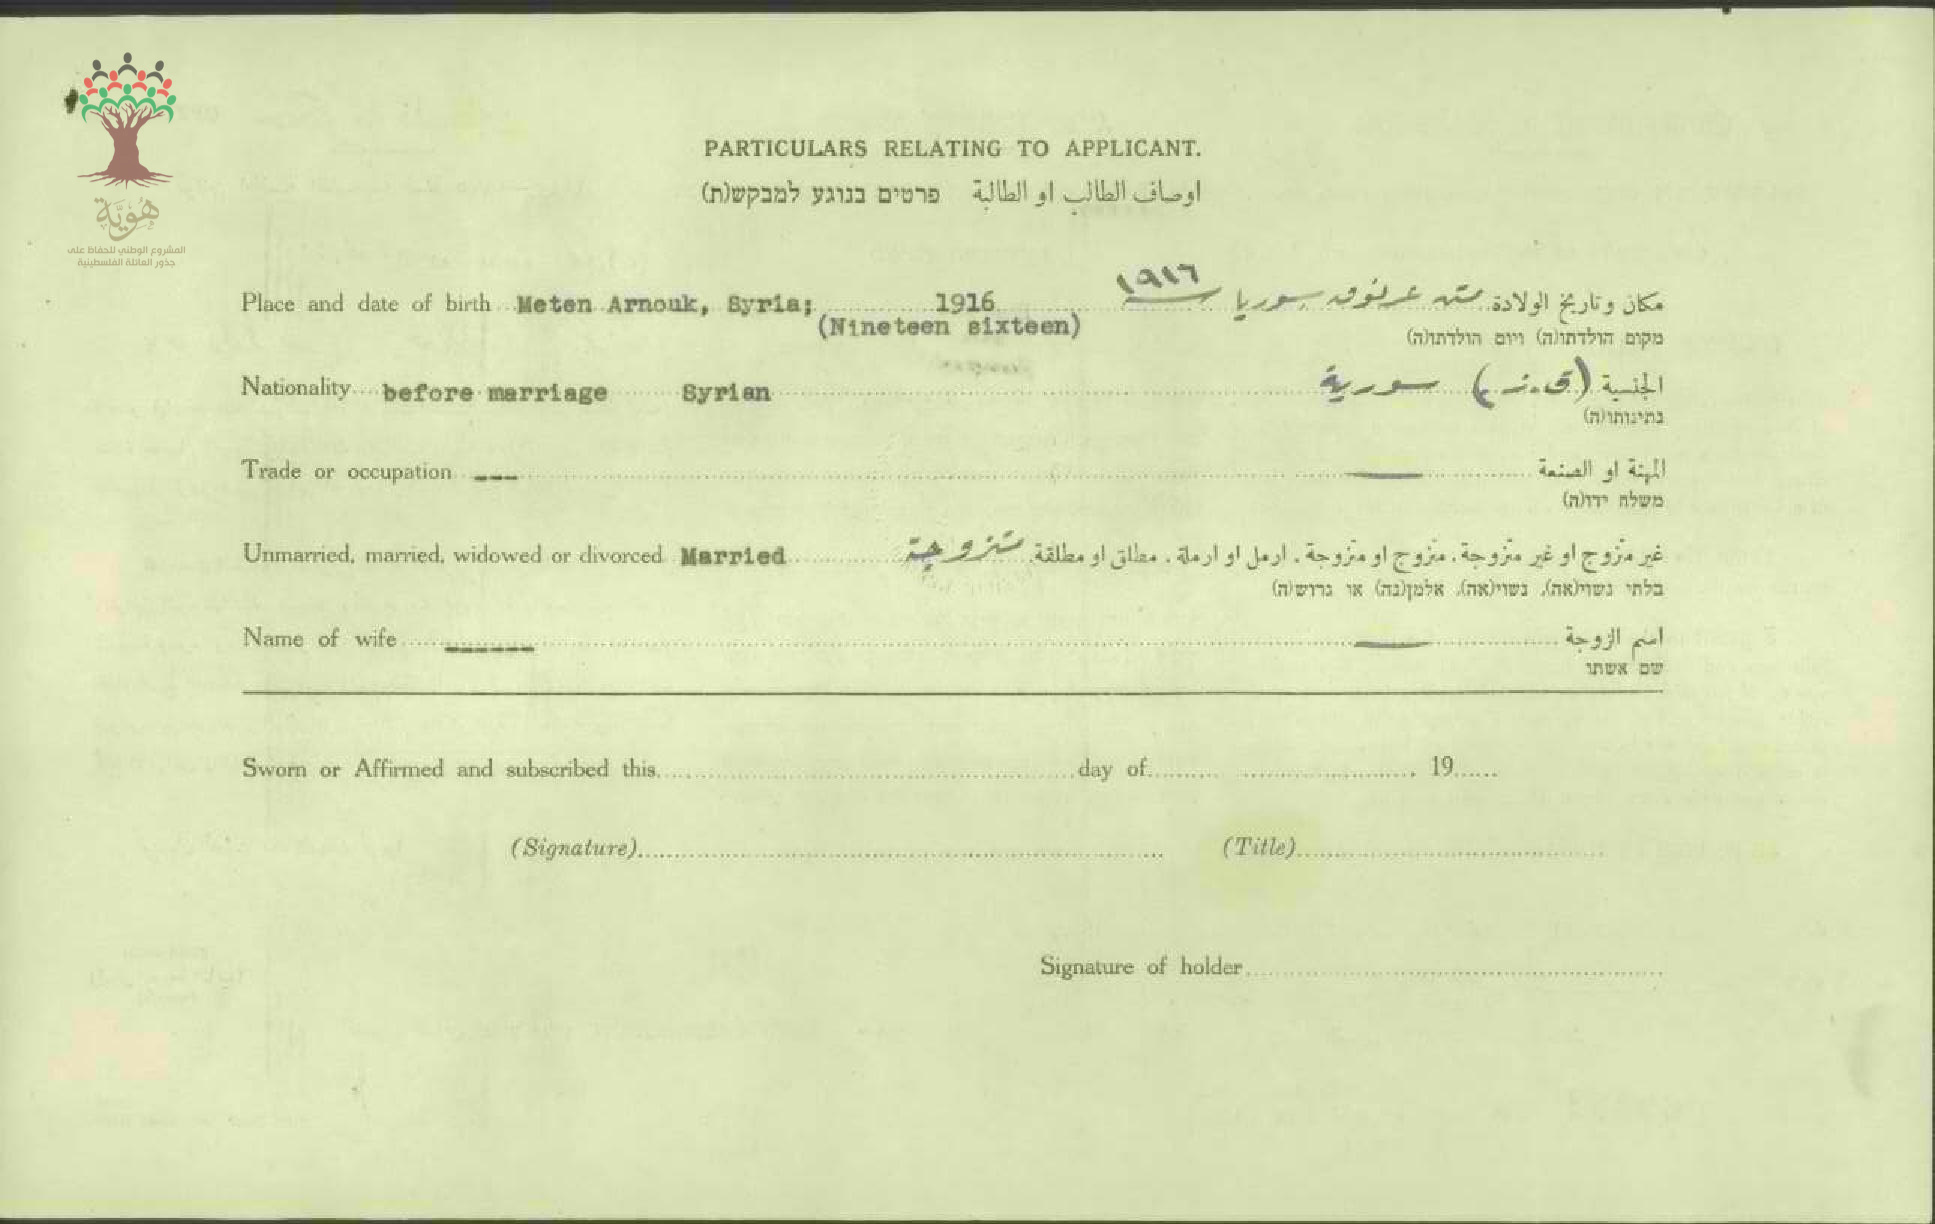 هُوِيَّة
المشروع الوطني للحفاظ على
جذور العائلة الفلسطينية
PARTICULARS RELATING TO APPLICANT.
اوصاف الطالب او الطالبة פרטים בנוגע למבקש(ת)
Place and date of birth Meten Arnouk, Syria; 1916 مكان وتاريخ الولادة متن عرنوق سوريا سنة ١٩١٦
(Nineteen sixteen)
מקום הולדתו(ה) ויום הולדתו(ה)
Nationality before marriage Syrian الجنسية (ق.ز) سورية
נתינותו(ה)
Trade or occupation --- المهنة او الصنعة —
משלח ידו(ה)
Unmarried, married, widowed or divorced Married غير متزوج او غير متزوجة، متزوج او متزوجة، ارمل او ارملة، مطلق او مطلقة. متزوجة
בלתי נשוי(אה), נשוי(אה), אלמן(נה) או גרוש(ה)
Name of wife ------ اسم الزوجة —
שם אשתו
Sworn or Affirmed and subscribed this day of 19
(Signature) (Title)
Signature of holder